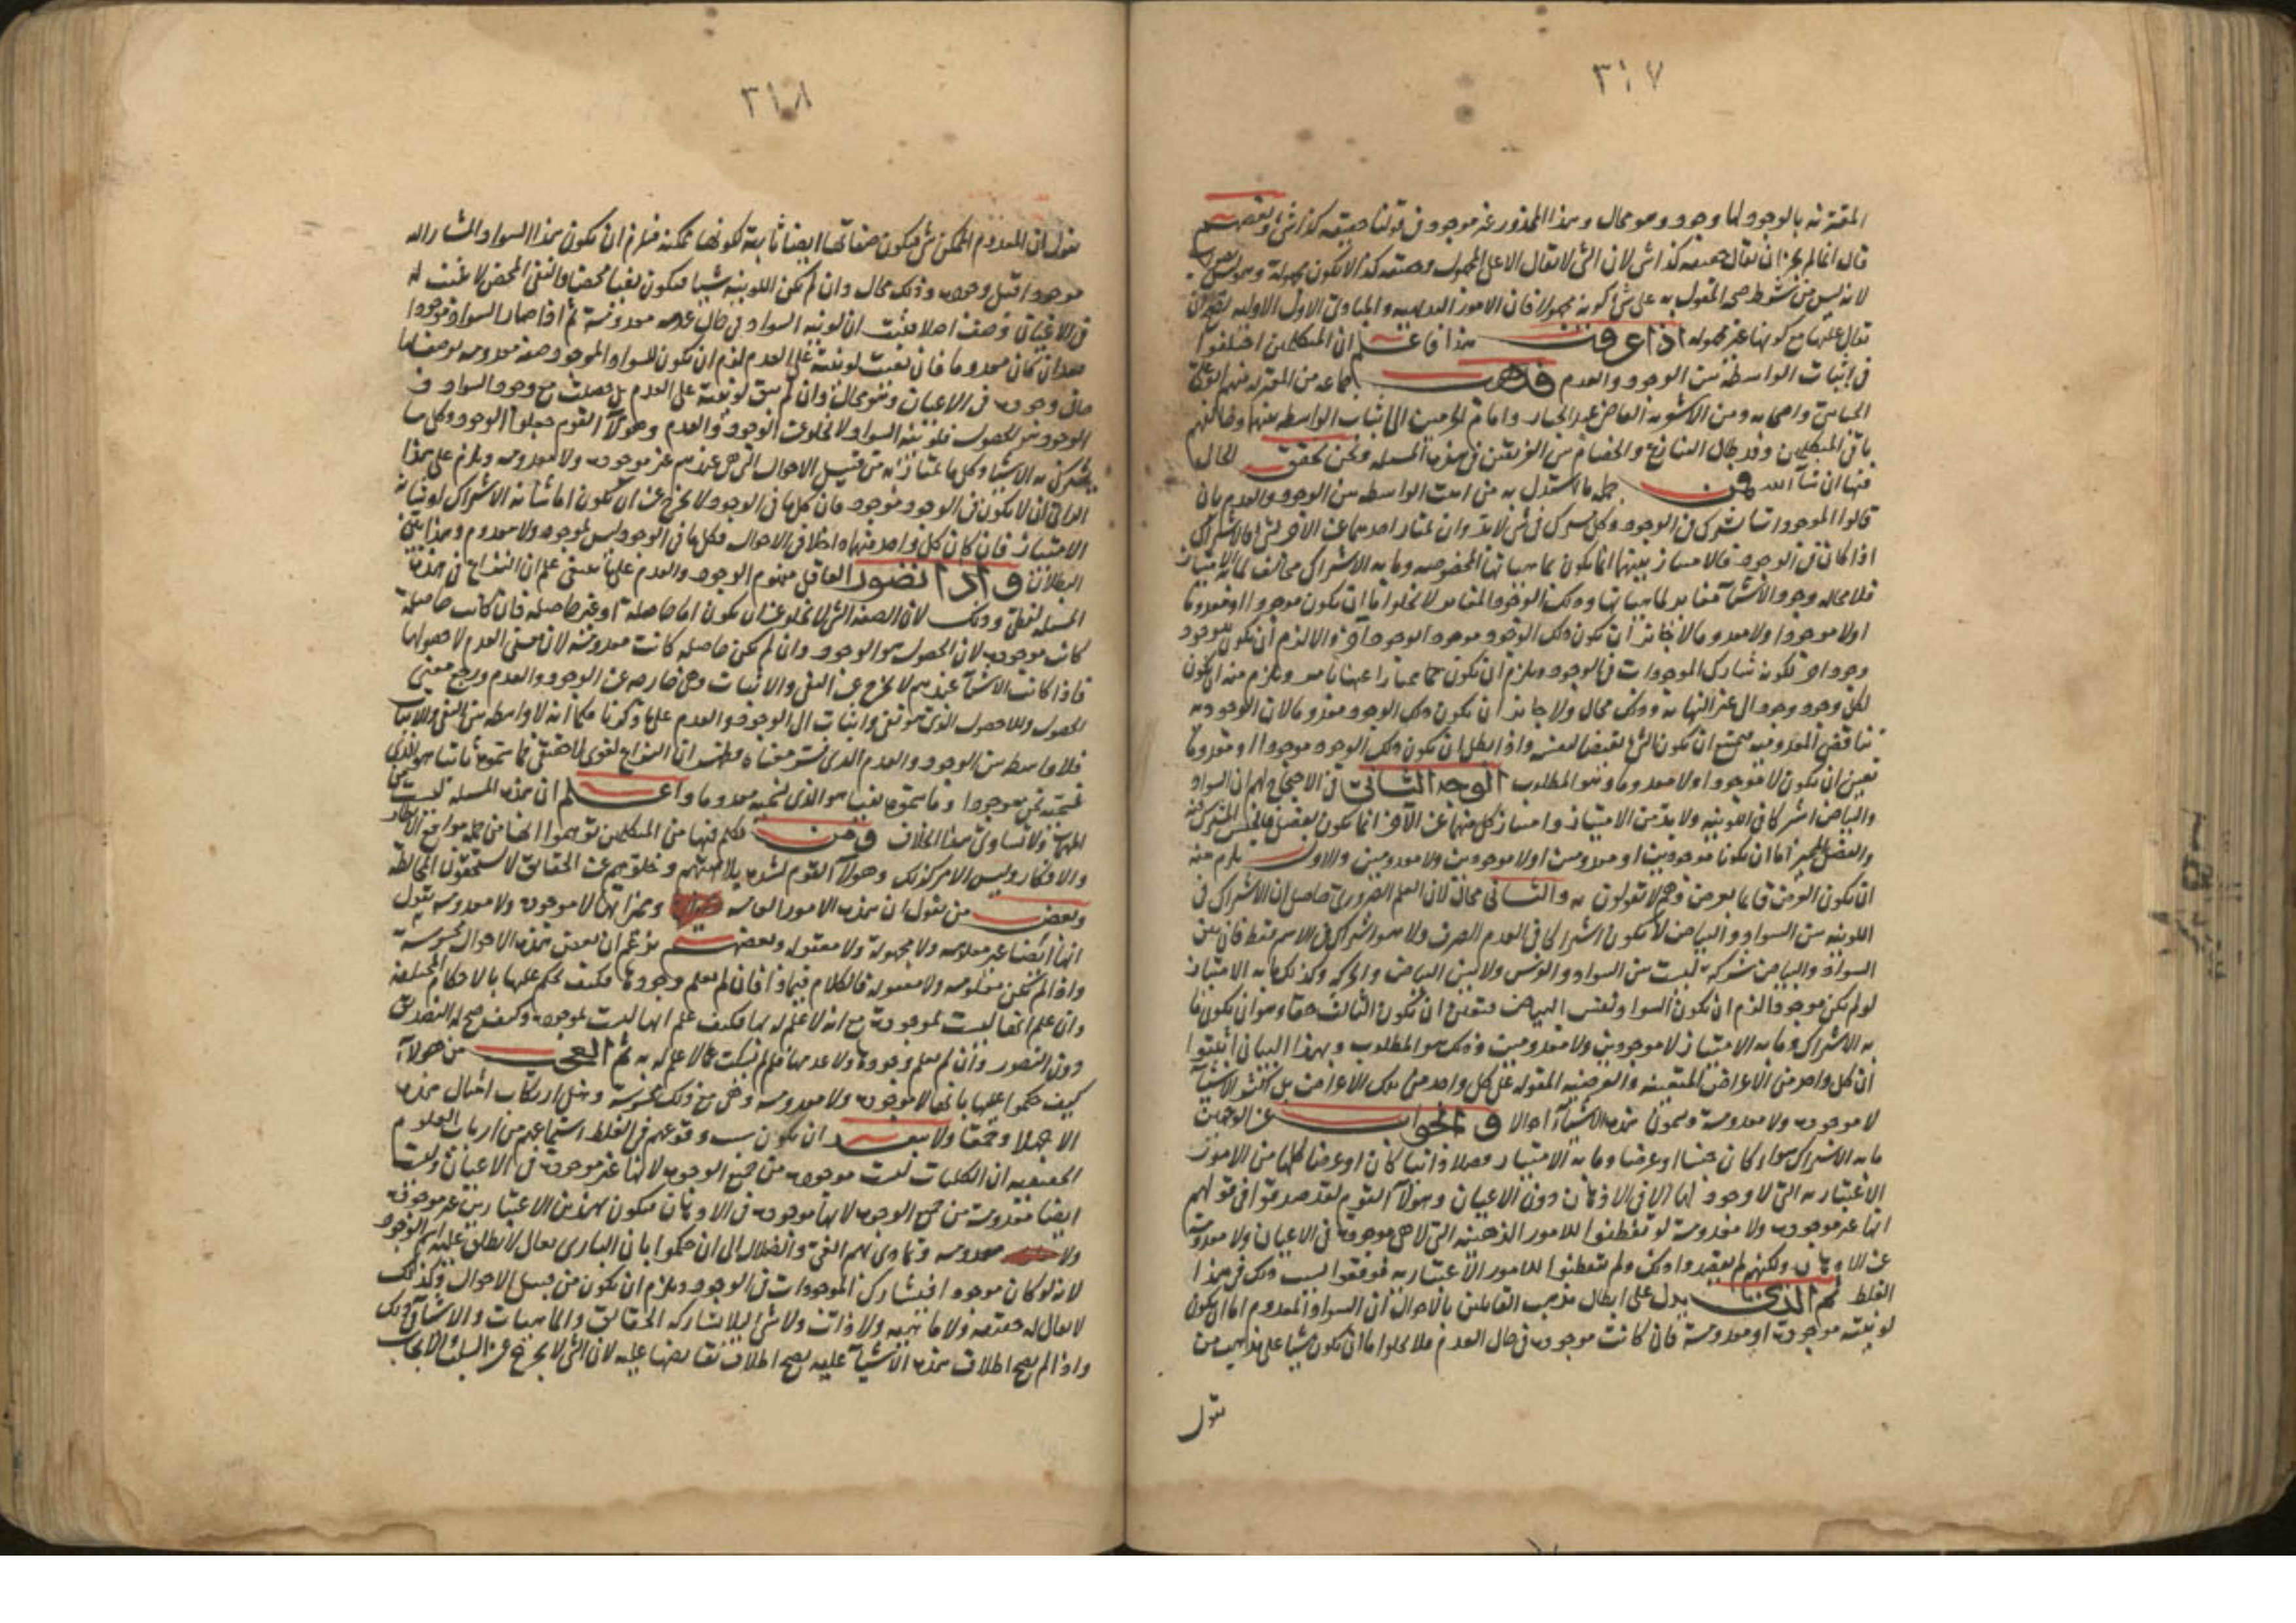 ٣١٧
المقترنه بالوجود لها وجود وهو محال وهذا المحذور غير موجود فى قولنا حقيقه كذا شى وبعضهم
قال انما لم يجز ان يقال حقيقه كذا شى لان الشى لا يقال الا على المجهول وحقيقه كذا لا يكون مجهولة وهو
لانه ليس من شرط صحه المقول به على شى كونه مجهولا فان الامور العدميه والمبادى الاول الاوليه يصح ان
يقال عليها مع كونها غير مجهوله اذا عرفت هذا فاعلم ان المتكلمين اختلفوا
فى اثبات الواسطه بين الوجود والعدم فذهب جماعه من المعتزله منهم ابو على
الجبائى واصحابه ومن الاشعريه القاضى عبد الجبار وامام الحرمين الى اثبات الواسطه بينهما وخالفهم
باقى المتكلمين وقد طال التنازع والخصام بين الفريقين فى هذه المسله ونحن نحقق الحال
فيها ان شآ الله فمن جمله ما استدل به من اثبت الواسطه بين الوجود والعدم بان
قالوا الموجودات تشترك فى الوجود وكل مشترك فى شى لا بد وان يمتاز احدهما عن الآخر بشى فالاشتراك
اذا كان فى الوجود فالامتياز بينهما انما يكون بماهياتها المخصوصه وما به الاشتراك مخالف لما به الامتياز
فلا محاله وجود الاشيآ مغاير لماهياتها وذلك الوجود المغاير لا يخلوا اما ان يكون موجودا او معدوما
اولا موجودا ولا معدوما لا جائز ان يكون ذلك الوجود موجود الوجود آخر والا لزم ان يكون للوجود
وجود اخر لكونه شارك الموجودات فى الوجود ويلزم ان يكون ممتازا عنها بامر ويلزم منه ان يكون
لكل وجود وجود الى غير النهايه وذلك محال ولا جائز ان يكون ذلك الوجود معدوما لان الوجود
يناقض المعدوميه يمتنع ان يكون الشى نقيضا لنفسه واذا بطل ان يكون ذلك الوجود موجودا او معدوما
تعين ان يكون لا موجودا ولا معدوما وهو المطلوب الوجه الثانى فى الاحتجاج لهم ان السواد
والبياض اشتركا فى اللونيه ولا بد من الامتياز وامتياز كل منهما عن الآخر انما يكون بفصل فالجنس المشترك فيه
والفصل المميز اما ان يكونا موجودين او معدومين اولا موجودين ولا معدومين والاول يلزم منه
ان يكون العرض قايما بعرض وهم لا يقولون به والثانى محال لان العلم الضرورى حاصل ان الاشتراك فى
اللونيه بين السواد والبياض لا يكون اشتراكا فى العدم الصرف ولا هو اشتراك فى الاسم فقط فان بين
السواد والبياض شركه ليست بين السواد والفرس ولا بين البياض والحركه وكذلك ما به الامتياز
لو لم يكن موجودا لزم ان يكون السواد نفس البياض فتعين ان يكون الثالث حقا وهو ان يكون ما
به الاشتراك وما به الامتياز لا موجودين ولا معدومين وذلك هو المطلوب وبهذا البيان اثبتوا
ان كل واحد من الاعراض المتعينه والعرضيه المقوله على كل واحد من تلك الاعراض بل اكثر الاشيآ
لا موجوده ولا معدومة ويسمون هذه الاشيآ احوالا والجواب عن الوجهين
ما به الاشتراك سواء كان جنسا او عرضا وما به الامتياز فصلا ذاتيا كان او عرضا كلها من الامور
الاعتباريه التى لا وجود لها الا فى الاذهان دون الاعيان وهولآ القوم لقد صدقوا فى قولهم
انها غير موجوده ولا معدومة لو تفطنوا للامور الذهنيه التى لا هى موجوده فى الاعيان ولا معدومة
عن الاذهان ولكنهم لم يقصدوا ذلك ولم يتفطنوا للامور الاعتباريه فوقعوا لسبب ذلك فى هذا
الغلط ثم الذى يدل على ابطال مذهب القايلين بالاحوال ان السواد المعدوم اما ان يكون
لونيته موجودة او معدومة فان كانت موجوده فى حال العدم فلا يخلوا اما ان يكون شيا على مذهب من
يقول
٣١٨
يقول ان المعدوم الممكن شى فيكون صفاتها ايضا ثابتة لكونها ممكنه فيلزم ان يكون هذا السواد المشار اليه
موجودا قبل وجوده وذلك محال وان لم يكن اللونيه شيا فيكون نفيا محضا والنفى المحض لا تعين له
فى الاعيان وصفا اصلا فثبت ان لونيه السواد فى حال عدمه معدومة ثم اذا صار السواد موجودا
بعد ان كان معدوما فان بقيت لونيته على العدم لزم ان يكون للسواد الموجود صفه معدومه يوصف بها
حال وجوده فى الاعيان وهو محال وان لم يبق لونيته على العدم بل حصلت مع وجود السواد و
الوجود هو الحصول فلونيه السواد لا يخلوعن الوجود والعدم وهولآ القوم جعلوا الوجود وكل ما
يشترك به الاشيا وكل ما يمتاز به من قبيل الاحوال التى هى عندهم غير موجوده ولا معدومه ويلزم على هذا
الراى ان لا يكون فى الوجود موجود فان كل ما فى الوجود لا يخرج عن ان يكون اما شانه الاشتراك او شانه
الامتياز فان كان كل واحد منهما داخلا فى الاحوال فكل ما فى الوجود ليس بموجود ولا معدوم وهذا بين
البطلان واذا تصور العاقل مفهوم الوجود والعدم على ما ينبغى علم ان النزاع فى هذه
المسئله لفظى وذلك لان الصفه التى لا يخلو عن ان يكون اما حاصلة او غير حاصله فان كانت حاصلة
كانت موجوده لان الحصول هو الوجود وان لم يكن حاصله كانت معدومة لان معنى العدم لا حصولها
فاذا كانت الاشيآ عندهم لا يخرج عن النفى والاثبات وهى خارجه عن الوجود والعدم ويرجع معنى
الحصول واللاحصول الذى هو نفى واثبات الى الوجود والعدم على ما ذكرنا فكما انه لا واسطه بين النفى والاثبات
فلا واسطه بين الوجود والعدم الذى نفسر معناه وظهر ان النزاع لغوى لا حقيقى فما سموه ثابتا هو الذى
نسميه نحن موجودا وما سموه نفيا هو الذى نسميه معدوما واعلم ان هذه المسله ليست من
المهمه ولا تساوى هذا الخلاف ومن تكلم فيها من المتكلمين توهموا انها من جمله مواقع الانظار
والافكار وليس الامر كذلك وهولآ القوم لشده بلادتهم وخلوهم عن الحقايق لا يستحقون المخالطة
وبعض من يقول ان هذه الامور العامه ومميزاتها لا موجوده ولا معدومه يقول
انها ايضا غير معلومه ولا مجهولة ولا معقوله وبعضهم يزعم ان بعض هذه الاحوال محسوسة
واذا لم تكن معلومه ولا معقوله فالكلام فيماذا فان لم يعلم وجوده فكيف يحكم عليها بالاحكام المختلفة
وان علم انها ليست بموجودة مع انه لا علم له بها فكيف علم انها ليست بموجوده وكيف صح له التصديق
دون التصور وان لم يعلم وجوده ولا عدمها فلم لم يسكت عما لا علم له به ثم العجب من هولآ
كيف حكموا عليها بانها لا موجوده ولا معدومه وهى مع ذلك محسوسة وهل ارتكاب امثال هذه
الا جهلا وحمقا ولا يبعد ان يكون سبب وقوعهم فى الغلط استماعهم من ارباب العلوم
الحقيقيه ان الكليات ليست موجوده من جميع الوجوه لانها غير موجودة فى الاعيان وليست
ايضا معدومة من جميع الوجوه لانها موجوده فى الاذهان فيكون بهذين الاعتبارين غير موجودة
ولا معدومه وتمادى بهم الغى والضلال الى ان حكموا بان البارى تعالى لا يطلق عليه اسم الوجود
لانه لو كان موجودا فيشارك الموجودات فى الوجود ويلزم ان يكون من قبيل الاحوال وكذلك
لا يقال له حقيقه ولا ماهيه ولا ذات ولا شى ليلا يشاركه الحقائق والماهيات والاشيآ وذلك
واذا لم يصح اطلاق هذه الاشيآ عليه يصح اطلاق نقايضها عليه لان الشى لا يخرج عن السلب والايجاب